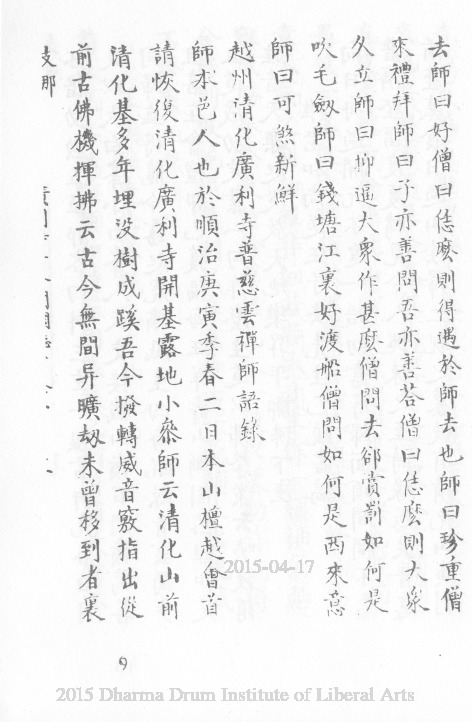 去師曰好僧曰恁麼則得遇於師去也師曰珍重僧
來禮拜師曰子亦善問吾亦善荅僧曰恁麼則大衆
久立師曰抑逼大衆作甚麼僧問去郤賞罰如何是
吹毛劔師曰錢塘江裏好渡船僧問如何是西來意
師曰可煞新鮮
越州清化廣利寺普慈雲禪師語錄
師本邑人也於順治庚寅季春二日本山檀越曾首
請恢復清化廣利寺開基露地小叅師云清化山前
清化基多年埋没樹成蹊吾今撥轉威音竅指出從
前古佛機揮拂云古今無間异曠劫未曾移到者裏
支那
9
2015-04-17
2015 Dharma Drum Institute of Liberal Arts